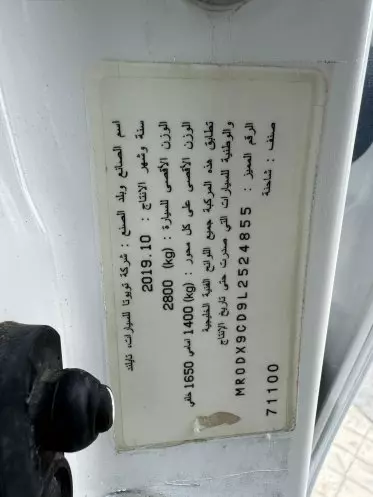 اسم الصانع وبلد الصنع : شركة تويوتا للسيارات، تايلند
سنة وشهر الانتاج : 2019.10
الوزن الأقصى للسيارة : 2800 (kg)
الوزن الأقصى على كل محور : 1400 (kg) أمامي 1650 خلفي
تطابق هذه المركبة جميع اللوائح الفنية الخليجية
والوطنية للسيارات التي صدرت حتى تاريخ الإنتاج
الرقم المميز : MR0DX9CD9L2524855
صنف : شاحنة
71100